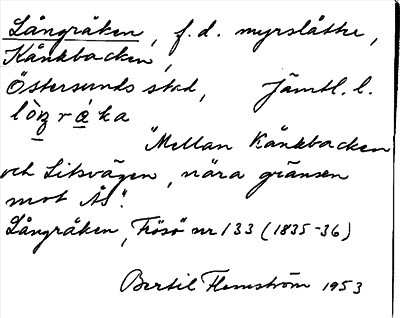 Långråken, f.d. myrslåtter,
Kånkbacken,
Östersunds stad, Jämtl. l.
lòŋrá̱ka
"Mellan Kånkbacken
och Litsvägen, nära gränsen
mot Ås".
Långråken, Frösö nr 133 (1835-36)
Bertil Flemström 1953